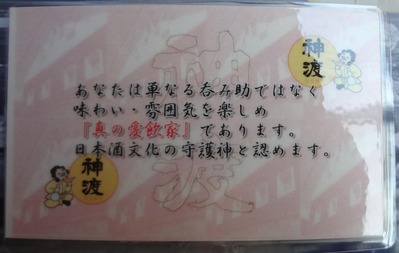 神渡
神渡
あなたは単なる呑み助ではなく
味わい・雰囲気を楽しめ
『真の愛飲家』であります。
日本酒文化の守護神と認めます。
神渡